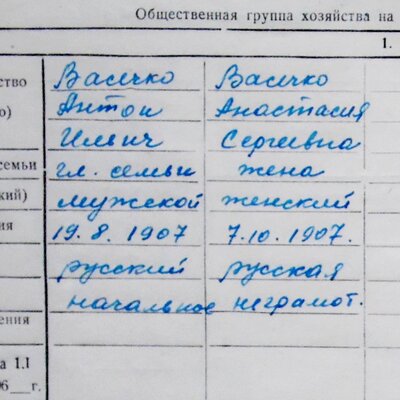 Общественная группа хозяйства на
1.
ство Васечко Васечко
о) Антон Анастасия
Ильич Сергеевна
семьи гл. семьи жена
кий) мужской женский
ия 19.8.1907 7.10.1907.
русский русская
начальное неграмот.
ения
а 1.I
96 г.